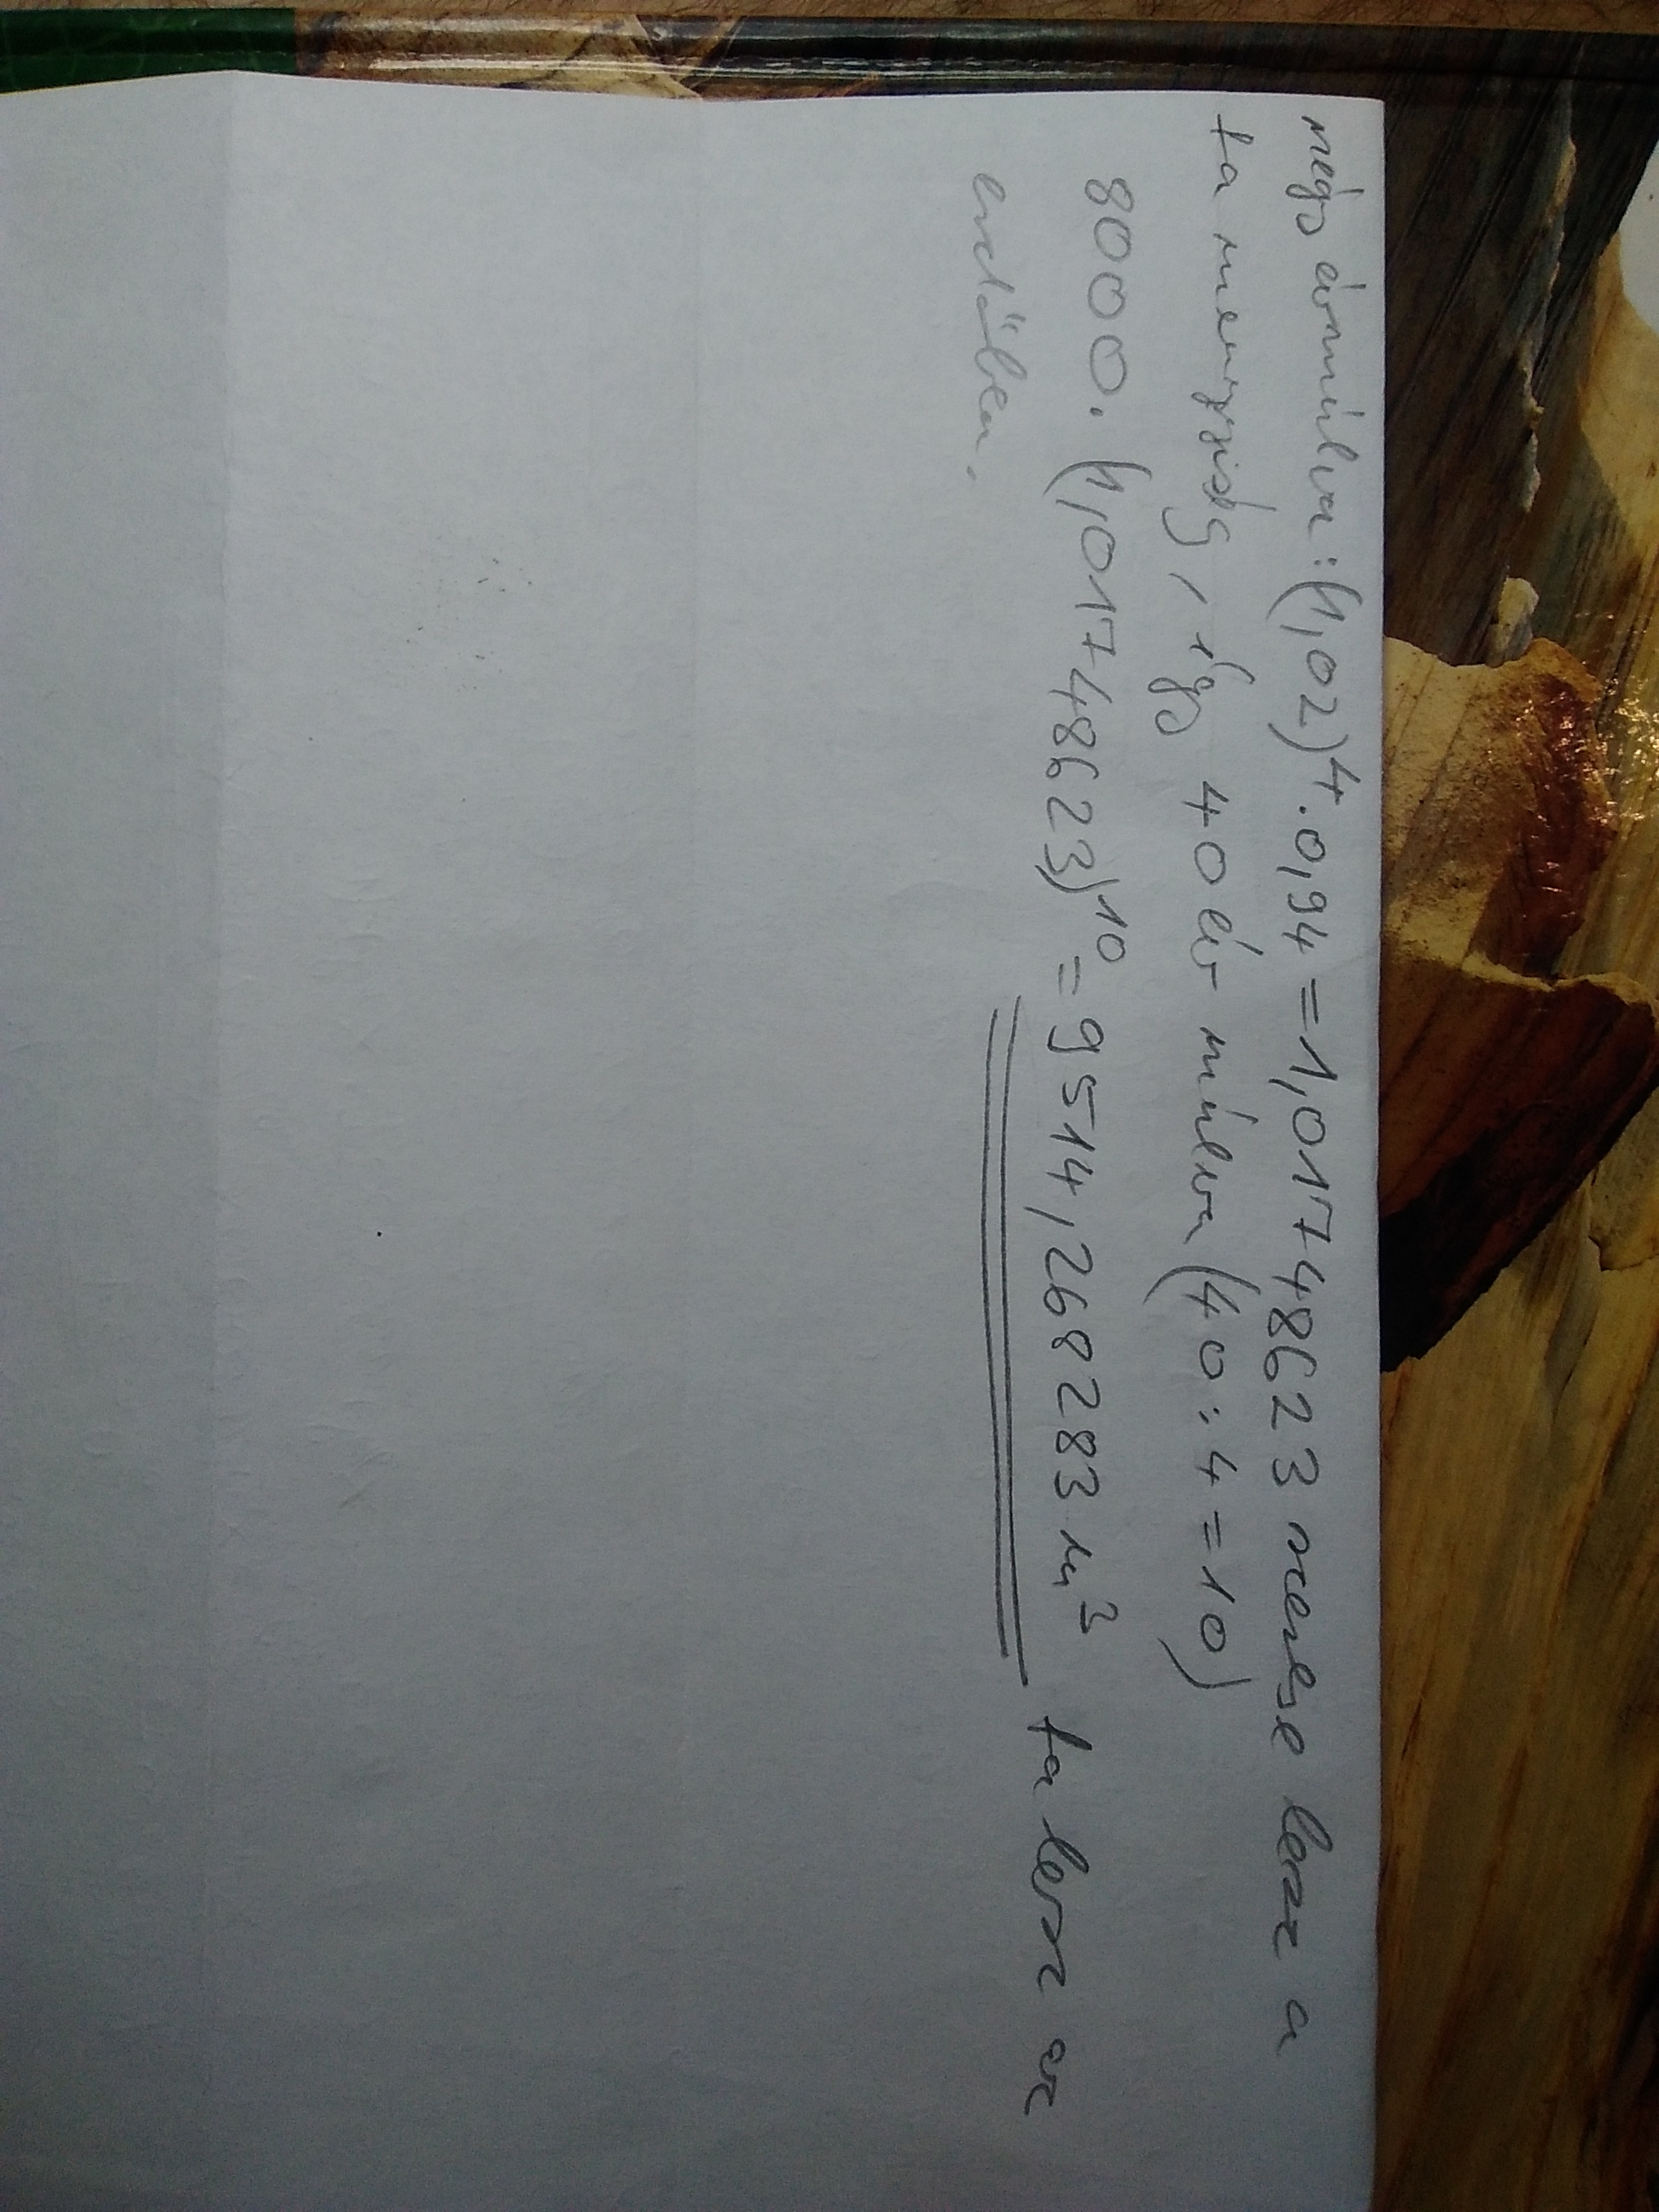 négy év múlva: (1,02)⁴·0,94 = 1,01748623 szerese lesz a
fa mennyiség, így 40 év múlva (40:4=10)
8000·(1,01748623)¹⁰ = 9514,268283 m³ fa lesz az
erdőben.